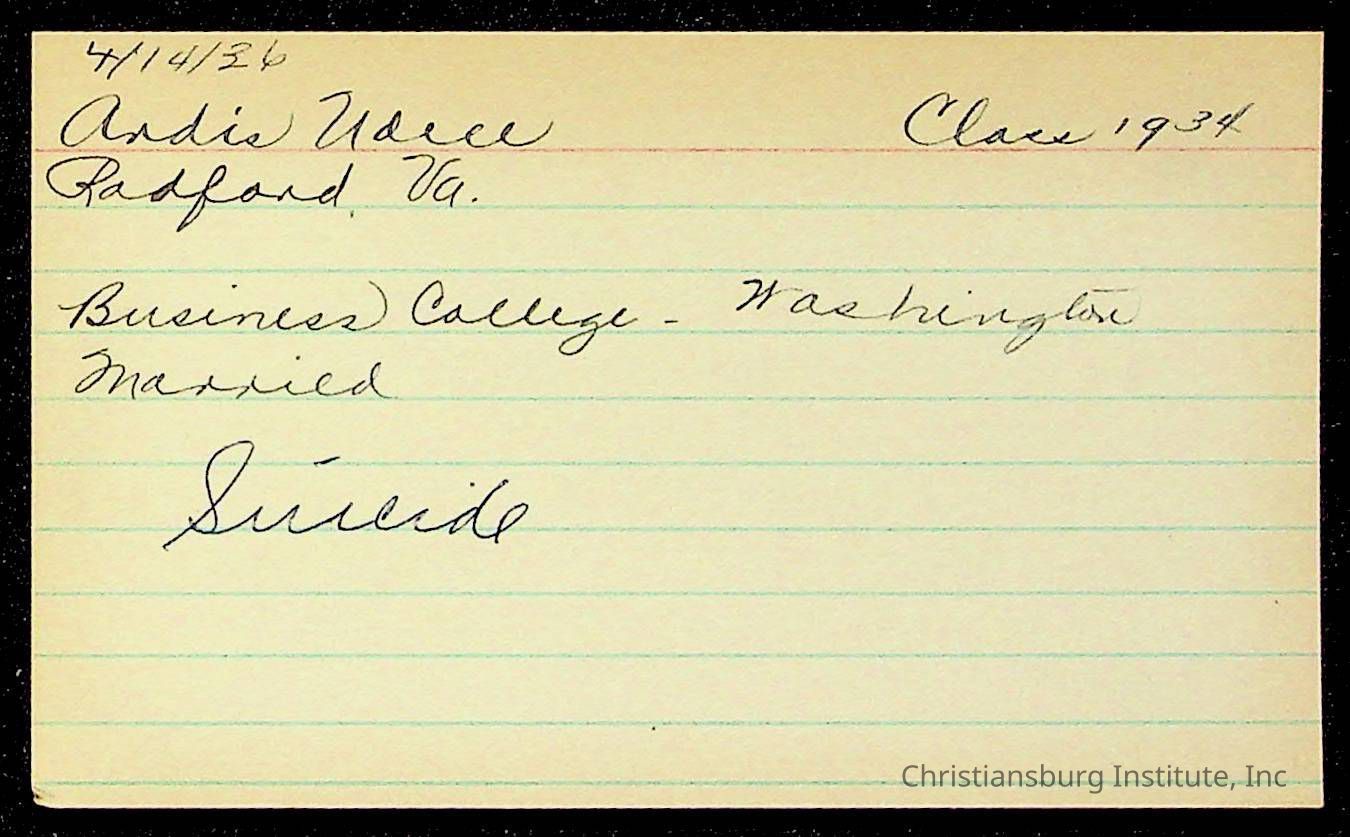 4/14/36
Ardis Class 1934
Radford, Va.
Business College - Washington
Married
Suicide
Christiansburg Institute, Inc